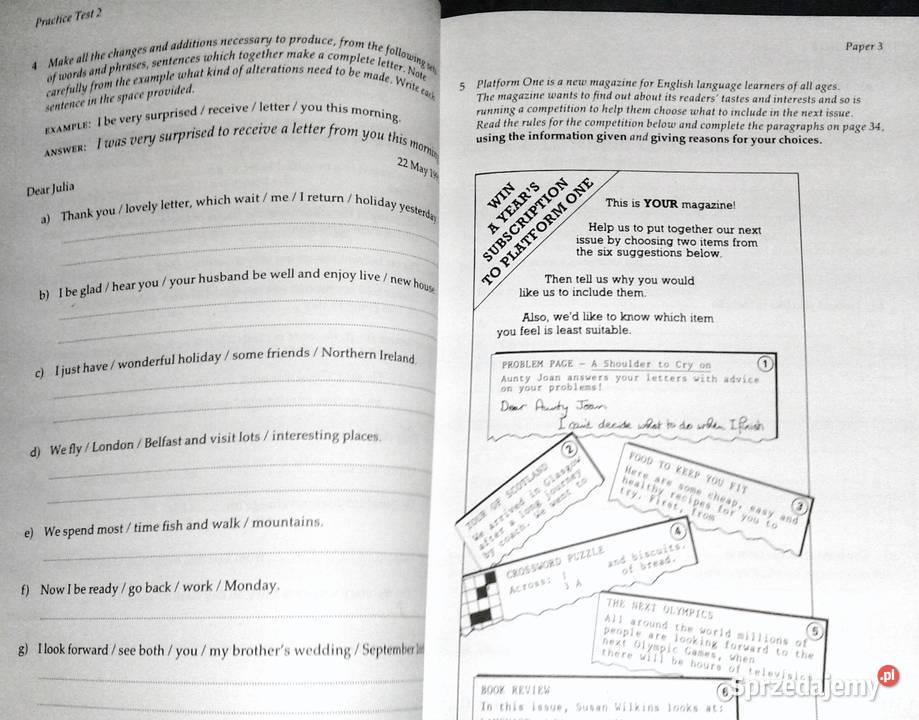 Practice Test 2
4 Make all the changes and additions necessary to produce, from the following sets
of words and phrases, sentences which together make a complete letter. Note
carefully from the example what kind of alterations need to be made. Write each
sentence in the space provided.
EXAMPLE: I be very surprised / receive / letter / you this morning.
ANSWER: I was very surprised to receive a letter from you this morning
22 May
Dear Julia
a) Thank you / lovely letter, which wait / me / I return / holiday yesterday
b) I be glad / hear you / your husband be well and enjoy live / new house
c) I just have / wonderful holiday / some friends / Northern Ireland.
d) We fly / London / Belfast and visit lots / interesting places.
e) We spend most / time fish and walk / mountains.
f) Now I be ready / go back / work / Monday.
g) I look forward / see both / you / my brother's wedding / September
Paper 3
5 Platform One is a new magazine for English language learners of all ages.
The magazine wants to find out about its readers' tastes and interests and so is
running a competition to help them choose what to include in the next issue.
Read the rules for the competition below and complete the paragraphs on page 34,
using the information given and giving reasons for your choices.
WIN
A YEAR'S
SUBSCRIPTION
TO PLATFORM ONE
This is YOUR magazine!
Help us to put together our next
issue by choosing two items from
the six suggestions below.
Then tell us why you would
like us to include them.
Also, we'd like to know which item
you feel is least suitable.
PROBLEM PAGE – A Shoulder to Cry on 1
Aunty Joan answers your letters with advice
on your problems!
Dear Aunty Joan
I can't decide what to do when I finish
2
TOUR OF SCOTLAND
We arrived in Glasgow
after a long journey
by coach. We went to
FOOD TO KEEP YOU FIT
Here are some cheap, easy and 3
healthy recipes for you to
try. First, from
4
CROSSWORD PUZZLE
Across: 1 and biscuits.
3 A of bread.
THE NEXT OLYMPICS
All around the world millions of 5
people are looking forward to the
next Olympic Games, when
there will be hours of television
BOOK REVIEW 6
In this issue, Susan Wilkins looks at:
Sprzedajemy.pl